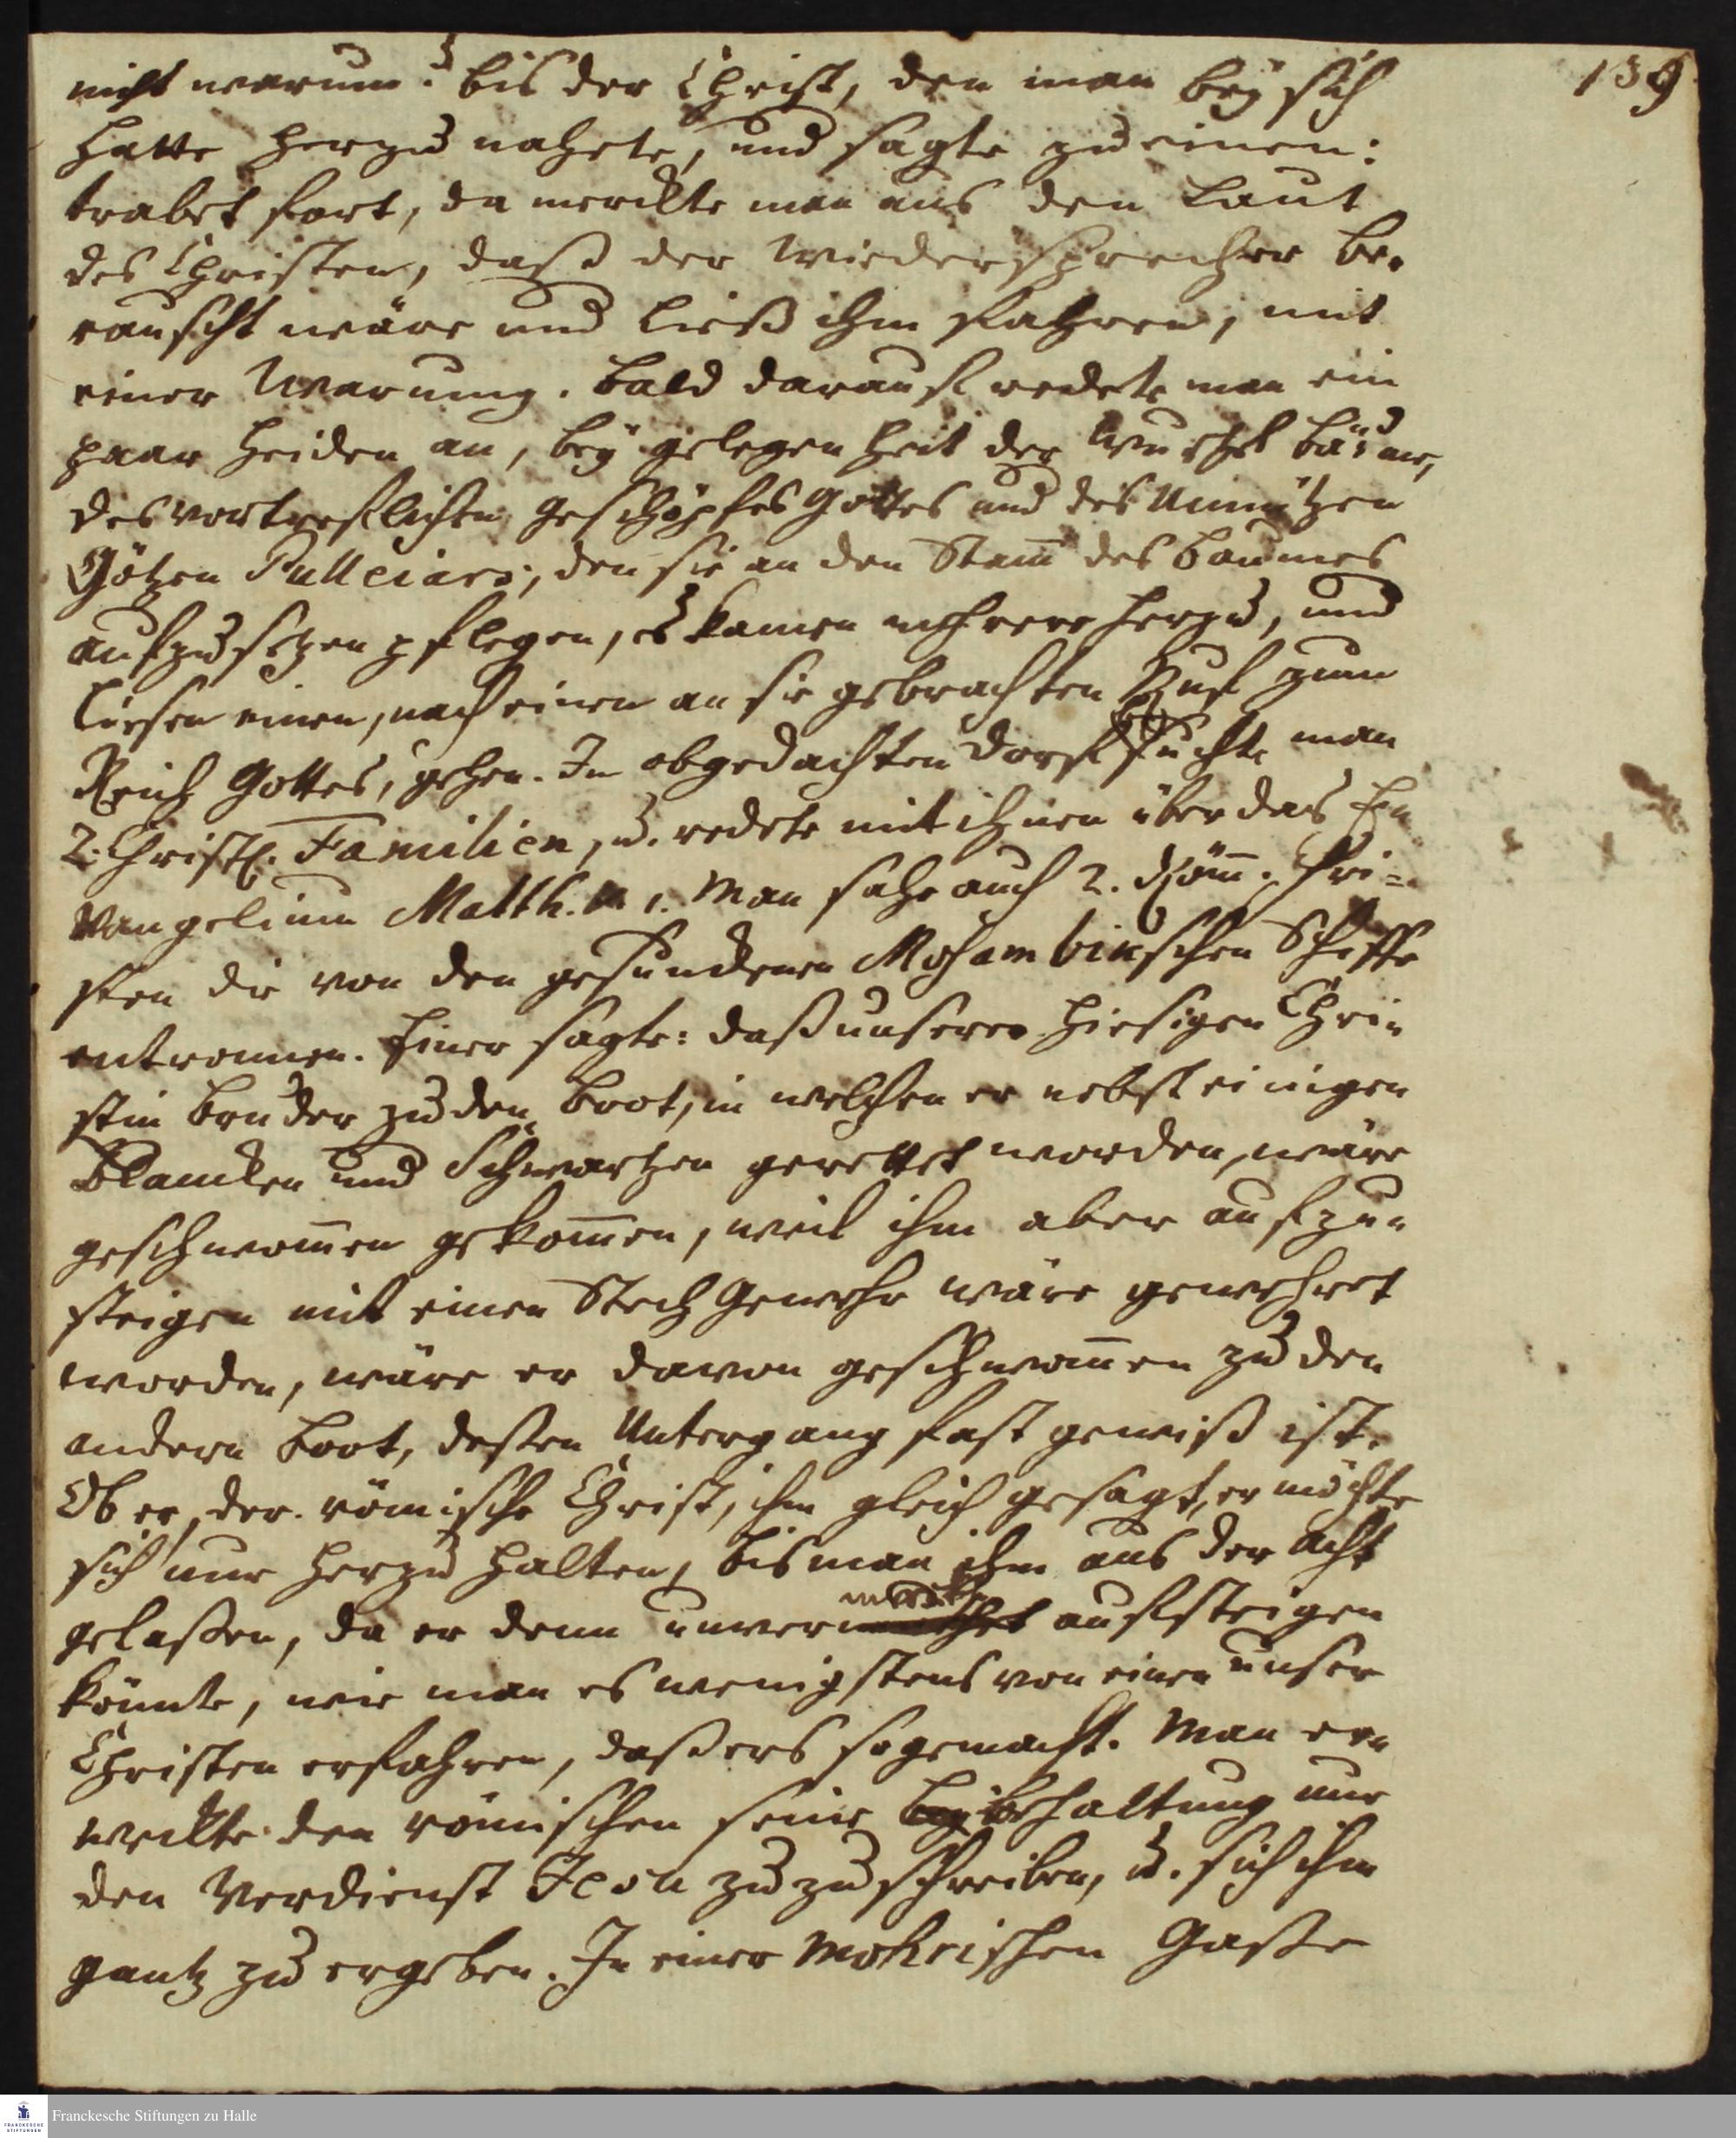 139
nicht warum? bis der Christ, den man bey sich
hatte herzu nahete, und sagte zu einen:
trabet fort, da merckte man aus den Laut
des Christen, daß der Wiedersprecher be-
rauscht wäre und ließ ihm fahren, mit
einer Warnung. Bald darauf redete man ein
paar Heiden an, bey gelegenheit der Wurzel Bäume,
des vortreflichen Geschöpfes Gottes und des Unnützen
Götzen Pulleiars, den sie an den Stam̅ des Baumes
aufzusetzen pflegen, es kamen mehrere herzu, und
liesen einen, nach einen an sie gebrachten Ruf zum
Reich Gottes, gehen. In obgedachten Dorf suchte man
2. Christl. Familien, u. redete mit ihnen über das E-
vangelium Matth. 1. Man sahe auch 2. Röm̅. Chri-
sten die von den gesunckenen Mosambikschen Schiffe
entronnen. Einer sagte: daß unserer hiesigen Chri-
stin Bruder zu den Boot, in welchen er nebst einigen
Blancken und Schwartzen gerettet worden, wäre
geschwom̅en gekom̅en, weil ihm aber aufzu-
steigen mit einen Stech Gewehr wäre gewehret
worden, wäre er davon geschwom̅en zu den
andern Boot, deßen Untergang fast gewiß ist.
Ob er, der römische Christ, ihm gleich gesagt, er möchte
sich nur herzu halten, bis man ihm aus der Acht
gelaßen, da er denn unvermerckt aufsteigen
könnte, wie man es wenigstens von einen unser
Christen erfahren, daß ers so gemacht. Man er-
weckte den römischen seine Beybehaltung nur
den Verdienst Jesu zuzuschreiben, u. sich ihm
gantz zu ergeben. In einer Mohrischen Gaße
Franckesche Stiftungen zu Halle